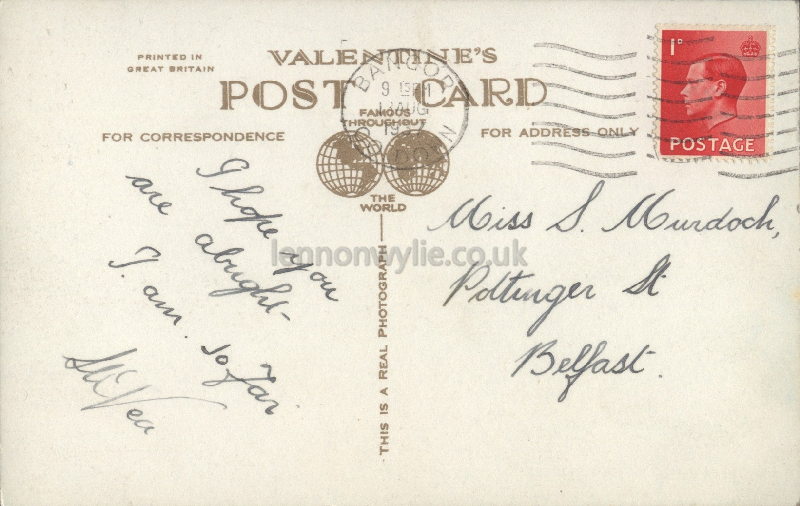 PRINTED IN
GREAT BRITAIN
VALENTINE'S
POST CARD
FAMOUS
THROUGHOUT
THE
WORLD
FOR CORRESPONDENCE
FOR ADDRESS ONLY
THIS IS A REAL PHOTOGRAPH
BANGOR
CO. DOWN
AUG
1D
POSTAGE
I hope you
are alright-
I. am. so Far.
Miss S. Murdoch,
Pottinger St
Belfast.
lennonwylie.co.uk